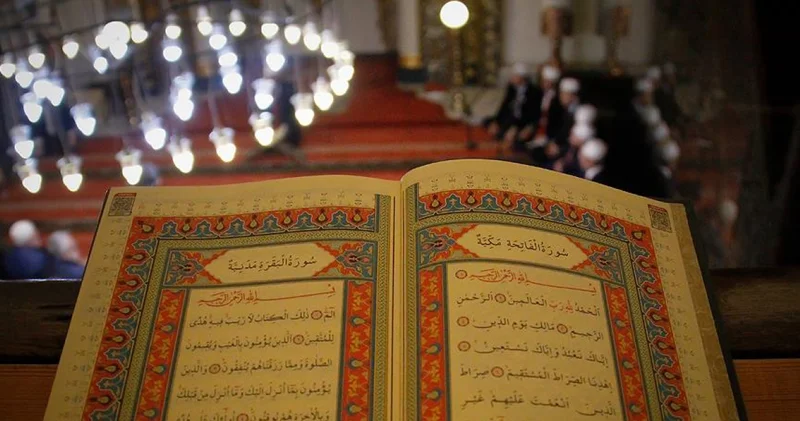 سُورَةُ الْفَاتِحَةِ مَكِّيَّةٌ
بِسْمِ اللهِ الرَّحْمٰنِ الرَّحِيمِ
اَلْحَمْدُ لِلّٰهِ رَبِّ الْعَالَمِينَ اَلرَّحْمٰنِ
الرَّحِيمِ مَالِكِ يَوْمِ الدِّينِ
اِيَّاكَ نَعْبُدُ وَاِيَّاكَ نَسْتَعِينُ
اِهْدِنَا الصِّرَاطَ الْمُسْتَقِيمَ صِرَاطَ
الَّذِينَ اَنْعَمْتَ عَلَيْهِمْ غَيْرِ
سُورَةُ الْبَقَرَةِ مَدَنِيَّةٌ
بِسْمِ اللهِ الرَّحْمٰنِ الرَّحِيمِ
الٓمٓ ذٰلِكَ الْكِتَابُ لَا رَيْبَ فِيهِ هُدًى
لِلْمُتَّقِينَ اَلَّذِينَ يُؤْمِنُونَ بِالْغَيْبِ وَيُقِيمُونَ
الصَّلٰوةَ وَمِمَّا رَزَقْنَاهُمْ يُنْفِقُونَ وَالَّذِينَ
يُؤْمِنُونَ بِمَا اُنْزِلَ اِلَيْكَ وَمَا اُنْزِلَ مِنْ قَبْلِكَ
وَبِالْاٰخِرَةِ هُمْ يُوقِنُونَ اُولٰئِكَ عَلٰى